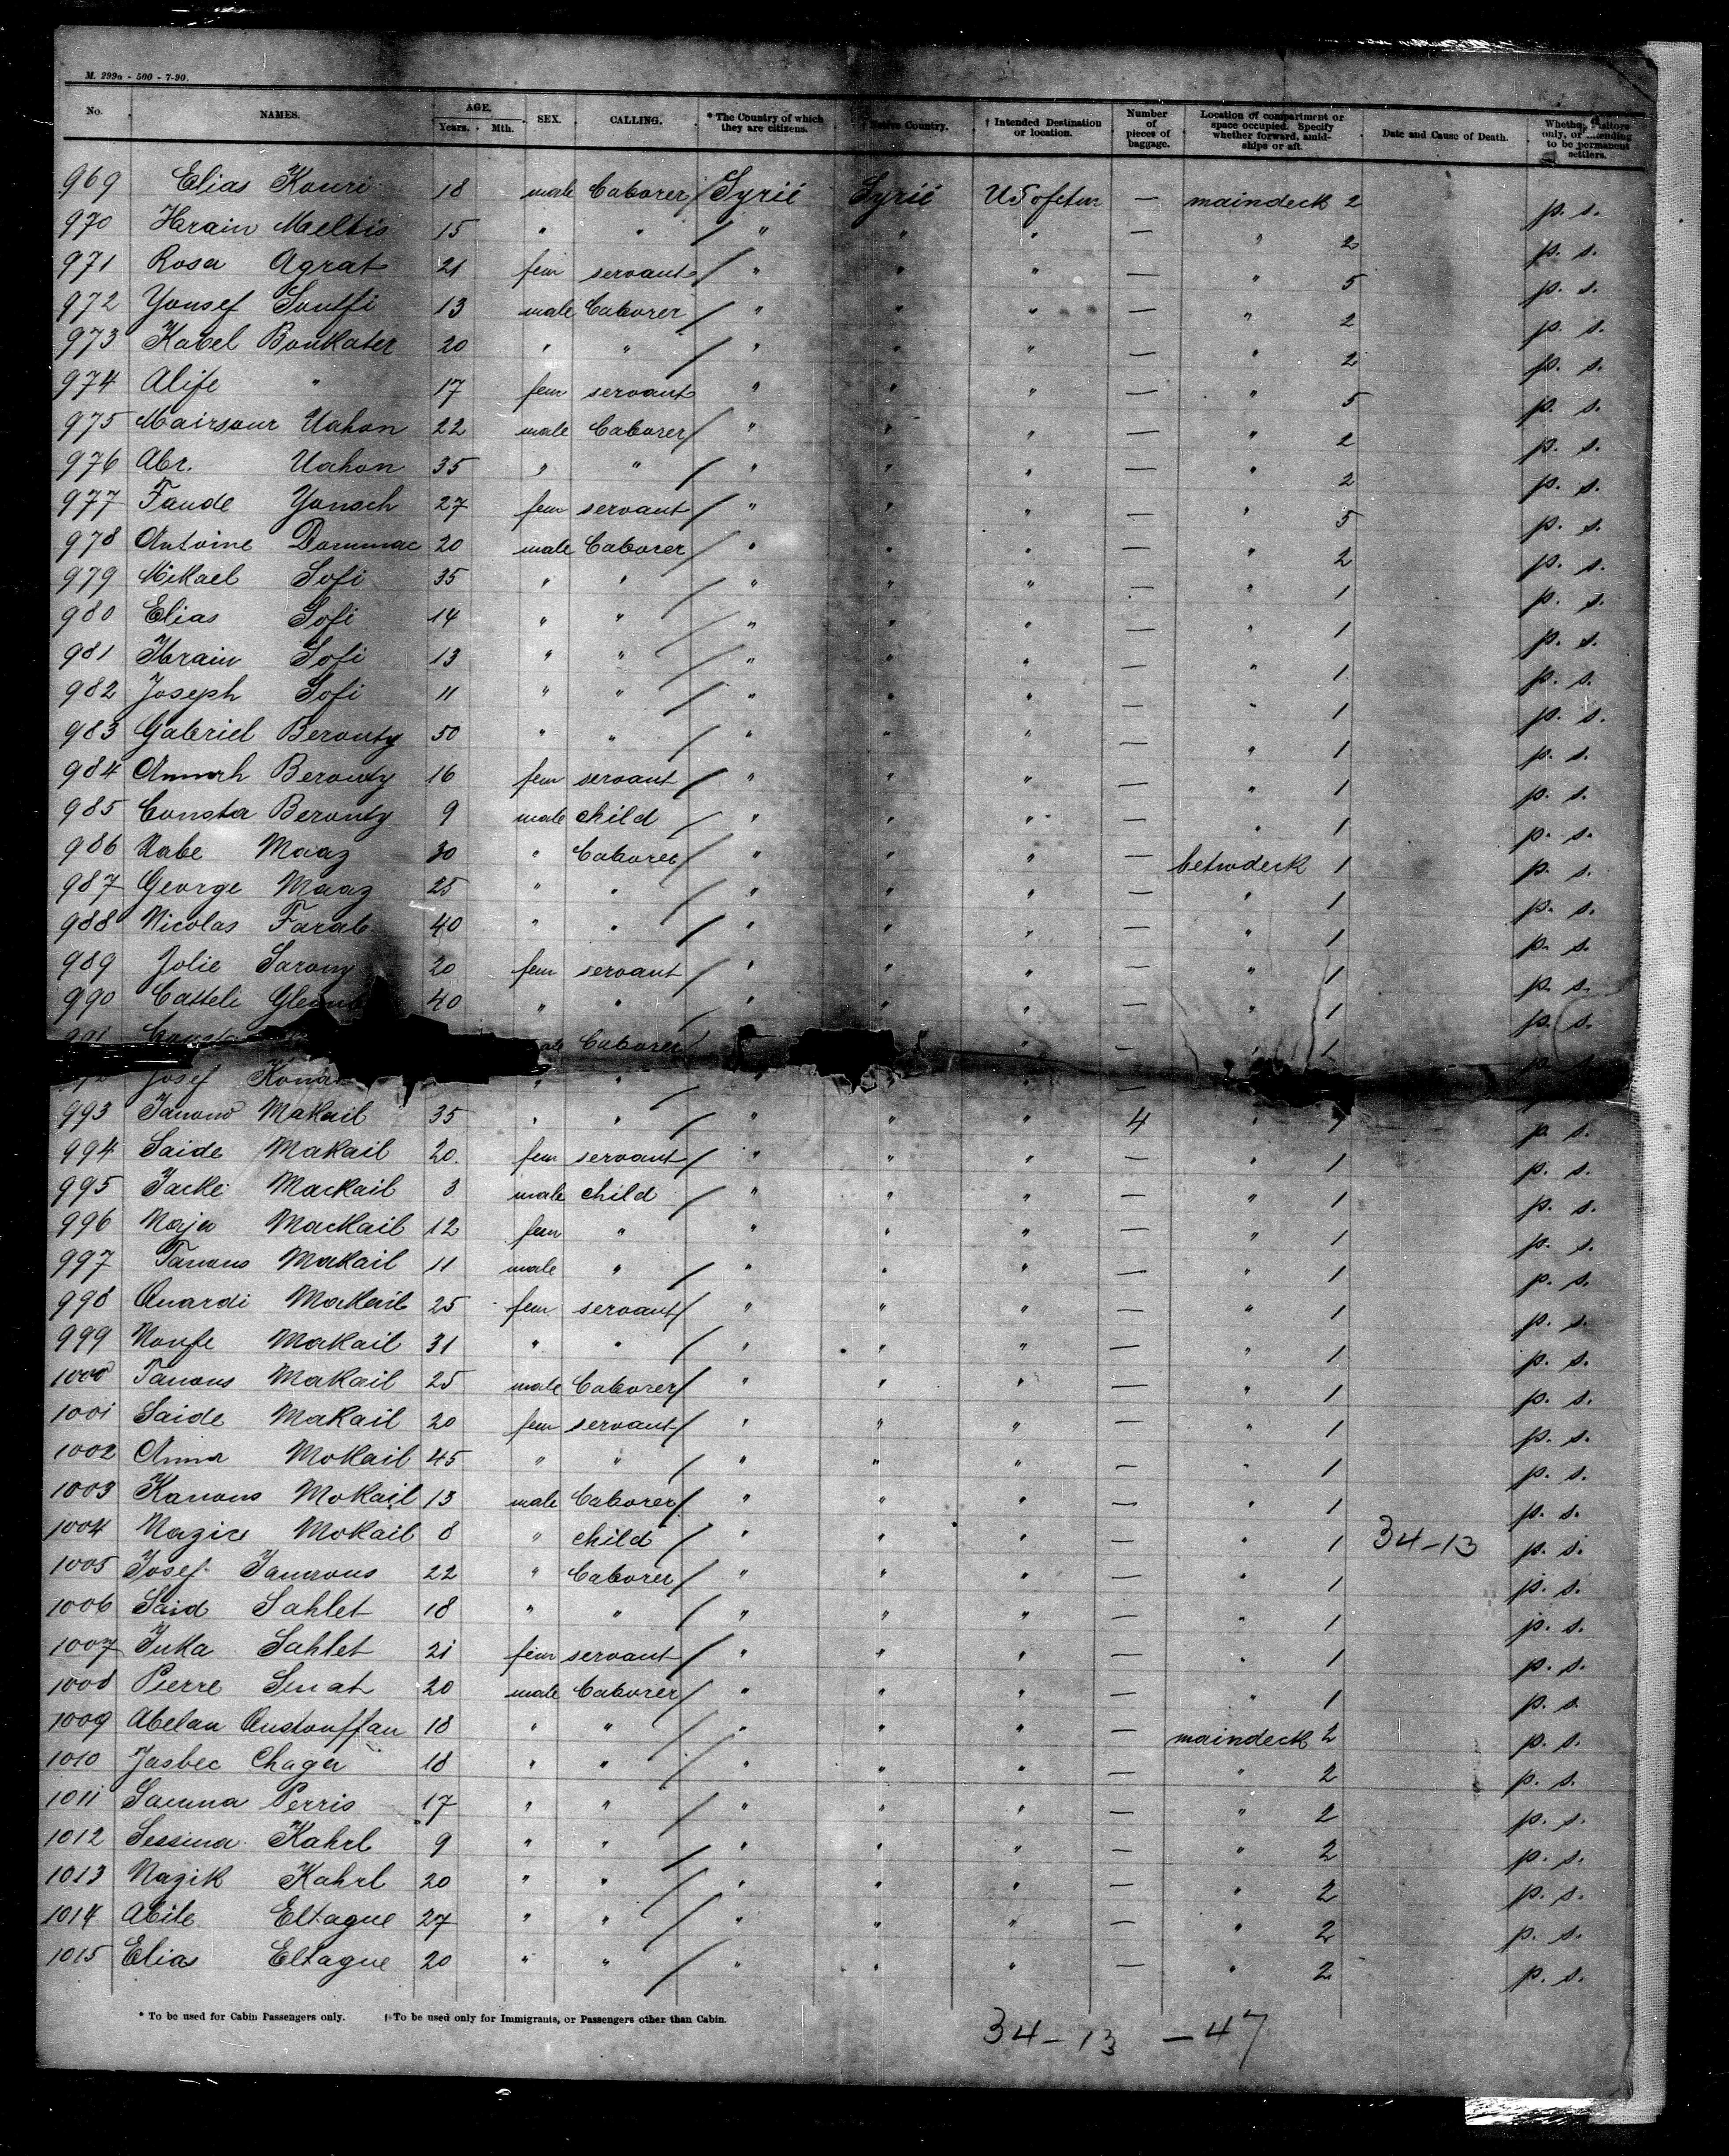 M. 299a - 500 - 7-90.
No. NAMES. AGE. Years. Mth. SEX. CALLING. * The Country of which they are citizens. Native Country. † Intended Destination or location. Number of pieces of baggage. Location of compartment or space occupied. Specify whether forward, amidships or aft. Date and Cause of Death. Whether visitors only, or intending to be permanent settlers.
969 Elias Kouri 18 male Laborer / Syrii Syrii US of — maindeck 2 p. s.
970 Ibrain Meltis 15 " " / " " " — " 2 p. s.
971 Rosa Agrat 21 fem servant / " " " — " 5 p. s.
972 Yousef Soulfi 13 male Laborer / " " " — " 2 p. s.
973 Kabel Boukater 20 " " / " " " — " 2 p. s.
974 Alife " 17 fem servant " " " — " 5 p. s.
975 Mairsour Nahon 22 male Laborer / " " " — " 2 p. s.
976 Abr. Nahon 35 " " / " " " — " 2 p. s.
977 Faude Yousch 27 fem servant / " " " — " 5 p. s.
978 Antoine Dommac 20 male Laborer / " " " — " 2 p. s.
979 Mikael Sofi 35 " " / " " " — " 1 p. s.
980 Elias Sofi 14 " " / " " " — " 1 p. s.
981 Ibrain Sofi 13 " " / " " " — " 1 p. s.
982 Joseph Sofi 11 " " / " " " — " 1 p. s.
983 Gabriel Berouty 50 " " / " " " — " 1 p. s.
984 Annah Berouty 16 fem servant / " " " — " 1 p. s.
985 Consta Berouty 9 male child / " " " — " 1 p. s.
986 Nabe Maaz 30 " Laborer / " " " — betwdeck 1 p. s.
987 George Maaz 25 " " / " " " — " 1 p. s.
988 Nicolas Farab 40 " " / " " " — " 1 p. s.
989 Jolie Sarony 20 fem servant / " " " — " 1 p. s.
990 Catteli 40 " " / " " " — " 1 p. s.
991 Laborer / " — " 1 p. s.
Josef " " / " " —
993 Tanous Makail 35 " " / " " " 4 " 1 p. s.
994 Saide Makail 20 fem servant / " " " — " 1 p. s.
995 Jacke Mackail 3 male child / " " " — " 1 p. s.
996 Naja Mackail 12 fem " " " " — " 1 p. s.
997 Tanous Makail 11 male " / " " " — " 1 p. s.
998 Ouardi Makail 25 fem servant / " " " — " 1 p. s.
999 Noufe Makail 31 " " / " " " — " 1 p. s.
1000 Tanous Makail 25 male Laborer / " " " — " 1 p. s.
1001 Saide Makail 20 fem servant / " " " — " 1 p. s.
1002 Anna Mokail 45 " " / " " " — " 1 p. s.
1003 Kanous Mokail 13 male Laborer / " " " — " 1 p. s.
1004 Nazira Mokail 8 " child / " " " — " 1 34-13 p. s.
1005 Josef Tanrous 22 " Laborer / " " " — " 1 p. s.
1006 Said Sahlet 18 " " / " " " — " 1 p. s.
1007 Juka Sahlet 21 fem servant / " " " — " 1 p. s.
1008 Pierre Senat 20 male Laborer / " " " — " 1 p. s.
1009 Abelan Oustouffan 18 " " / " " " — maindeck 2 p. s.
1010 Jasbec Chaga 18 " " / " " " — " 2 p. s.
1011 Samna Perris 17 " " / " " " — " 2 p. s.
1012 Sessina Kahrl 9 " " / " " " — " 2 p. s.
1013 Nazik Kahrl 20 " " / " " " — " 2 p. s.
1014 Abile Eltague 27 " " / " " " — " 2 p. s.
1015 Elias Eltague 20 " " / " " " — " 2 p. s.
* To be used for Cabin Passengers only. † To be used only for Immigrants, or Passengers other than Cabin.
34-13 -47